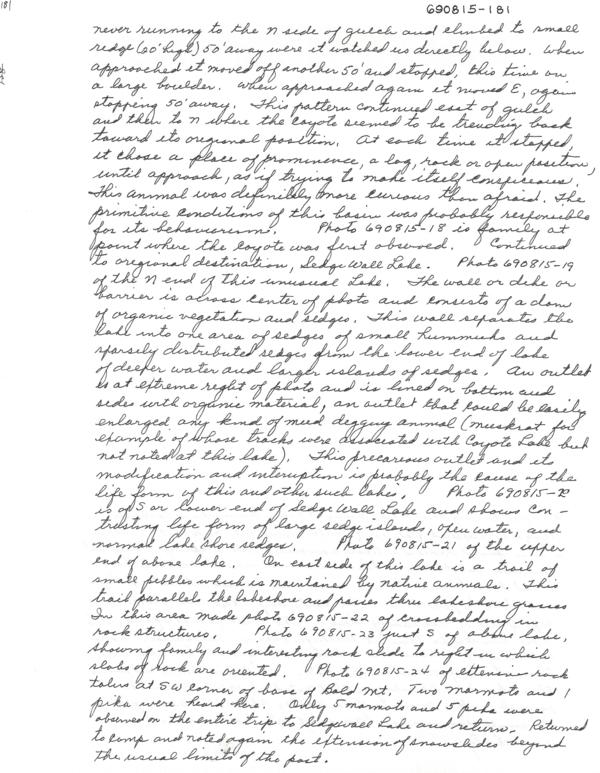 181
690815-181
never running to the N side of gulch and climbed to small
ridge (60' high) 50' away were it watched us directly below. When
approached it moved off another 50' and stopped, this time on
a large boulder. When approached again it moved E, again
stopping 50' away. This pattern continued east of gulch
and then to N where the coyote seemed to be trending back
toward its oregional position. At each time it stopped,
it chose a place of prominence, a log, rock or open position,
until approach, as if trying to make itself conspicuous.
This animal was definitely more curious then afraid. The
primitive conditions of this basin was probably responsible
for its behaviorism. Photo 690815-18 is family at
point where the coyote was first observed. Continued
to oregional destination, Sedge Wall Lake. Photo 690815-19
of the N end of this unusual lake. The wall or dike or
barrier is across center of photo and consists of a dam
of organic vegetation and sedges. This wall separates the
lake into one area of sedges of small hummucks and
sparsily distributed sedges from the lower end of lake
of deeper water and larger islands of sedges. An outlet
is at extreme right of photo and is lined on bottom and
sides with organic material, an outlet that could be easily
enlarged any kind of mud digging animal (muskrat for
example of whose tracks were associated with Coyote Lake but
not noted at this lake). This precarious outlet and its
modification and interuption is probably the cause of the
life form of this and other such lakes. Photo 690815-20
is of S or lower end of Sedge Wall Lake and shows con-
trasting life form of large sedge islands, open water, and
normal lake shore sedges. Photo 690815-21 of the upper
end of above lake. On east side of this lake is a trail of
small pebbles which is maintained by native animals. This
trail parallels the lakeshore and passes thru lakeshore grasses
In this area made photo 690815-22 of crossbedding in
rock structures. Photo 690815-23 just S of above lake,
showing family and interesting rock slide to right in which
slabs of rock are oriented. Photo 690815-24 of extensive rock
talus at SW corner of base of Bald Mt. Two marmots and 1
pika were heard here. Only 5 marmots and 5 pika were
observed on the entire trip to Sedgewall Lake and return. Returned
to camp and noted again the extension of snowslides beyond
the usual limits of the past.